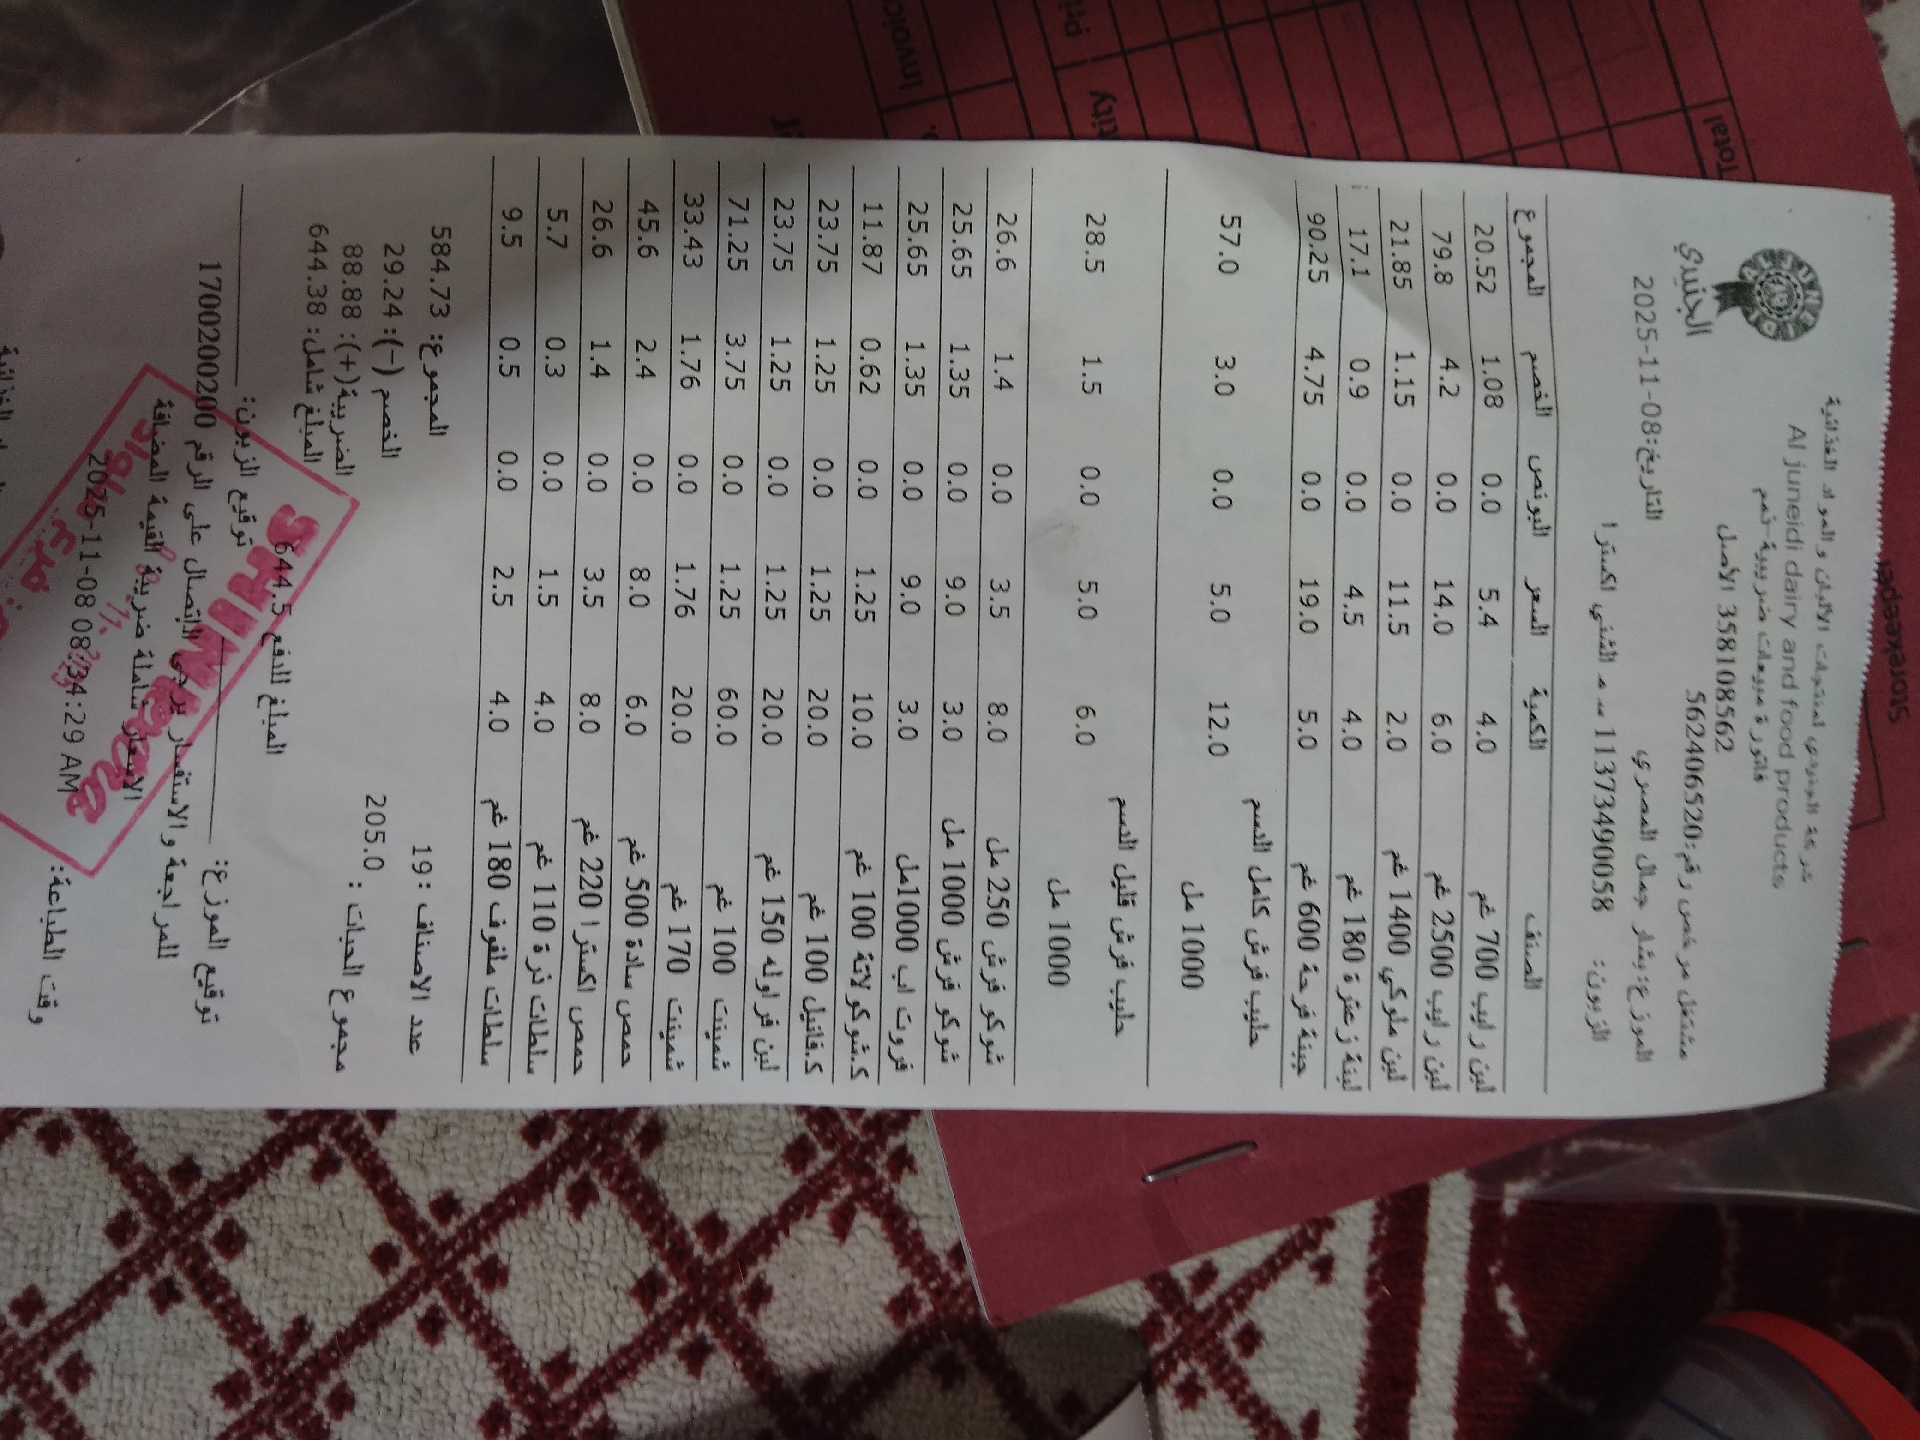 شركة الجنيدي لمنتجات الالبان و المواد الغذائية
Al juneidi dairy and food products
فاتورة مبيعات ضريبية-ذمم
الجنيدي
358108562 الأصل
مشتغل مرخص رقم:562406520
التاريخ:2025-11-08 الموزع:بشار جمال المصري
الزبون: 11373490058 س م الثني اكسترا
الصنف الكمية السعر البونص الخصم المجموع
لبن رايب 700 غم 4.0 5.4 0.0 1.08 20.52
لبن رايب 2500 غم 6.0 14.0 0.0 4.2 79.8
لبن ملوكي 1400 غم 2.0 11.5 0.0 1.15 21.85
لبنة زعترة 180 غم 4.0 4.5 0.0 0.9 17.1
جبنة فرحة 600 غم 5.0 19.0 0.0 4.75 90.25
حليب فرش كامل الدسم 12.0 5.0 0.0 3.0 57.0
1000 مل
حليب فرش قليل الدسم 6.0 5.0 0.0 1.5 28.5
1000 مل
شوكو فرش 250 مل 8.0 3.5 0.0 1.4 26.6
شوكو فرش 1000 مل 3.0 9.0 0.0 1.35 25.65
فروت اب 1000مل 3.0 9.0 0.0 1.35 25.65
ك.شوكولاتة 100 غم 10.0 1.25 0.0 0.62 11.87
ك.فانيل 100 غم 20.0 1.25 0.0 1.25 23.75
لبن فراوله 150 غم 20.0 1.25 0.0 1.25 23.75
شمينت 100 غم 60.0 1.25 0.0 3.75 71.25
شمينت 170 غم 20.0 1.76 0.0 1.76 33.43
حمص سادة 500 غم 6.0 8.0 0.0 2.4 45.6
حمص اكسترا 220 غم 8.0 3.5 0.0 1.4 26.6
سلطات ذرة 110 غم 4.0 1.5 0.0 0.3 5.7
سلطات ملفوف 180 غم 4.0 2.5 0.0 0.5 9.5
عدد الاصناف :19 المجموع: 584.73
الخصم (-): 29.24
مجموع الحبات : 205.0 الضريبة(+): 88.88
المبلغ شامل: 644.38
المبلغ للدفع 644.5
توقيع الموزع: توقيع الزبون:
للمراجعة و الاستفسار يرجى الاتصال على الرقم 1700200200
الاسعار شاملة ضريبة القيمة المضافة
وقت الطباعة: 2025-11-08 08:34:29 AM
Total
Invoice
Storekeeper